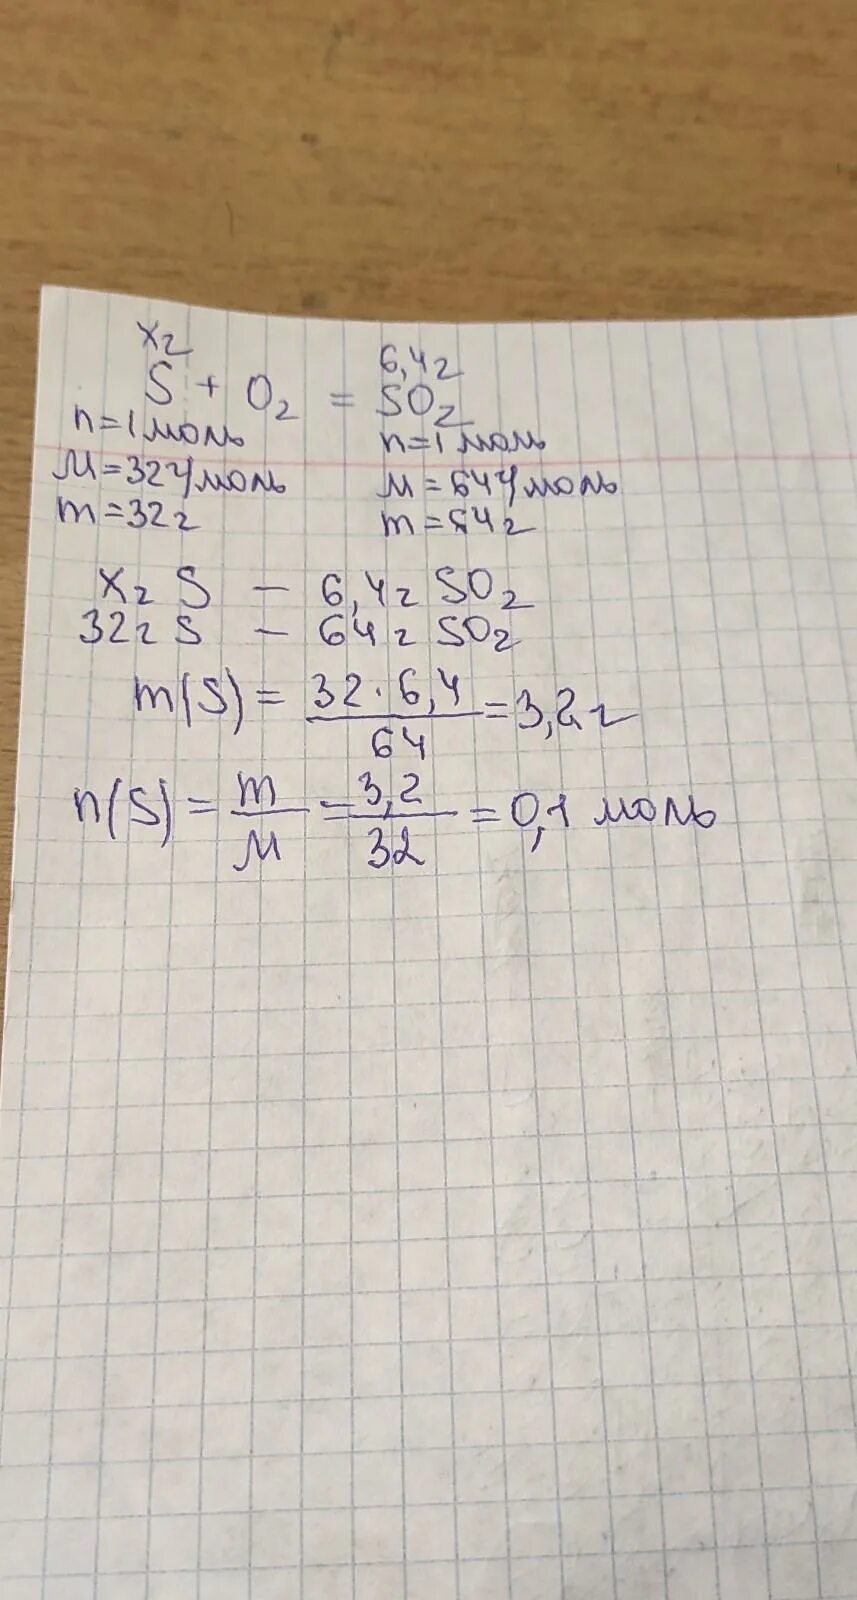 x г 6,4 г
S + O₂ = SO₂
n=1 моль n=1 моль
M=32 г/моль M=64 г/моль
m=32 г m=64 г
x г S — 6,4 г SO₂
32 г S — 64 г SO₂
m(S) = 32·6,4 / 64 = 3,2 г
n(S) = m / M = 3,2 / 32 = 0,1 моль